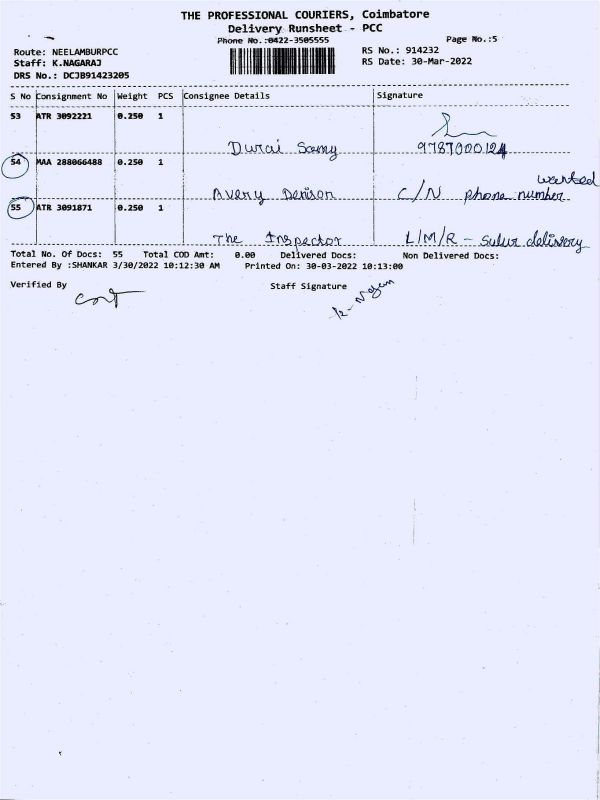 THE PROFESSIONAL COURIERS, Coimbatore
Delivery Runsheet - PCC
Phone No.:0422-3505555 Page No.:5
Route: NEELAMBURPCC RS No.: 914232
Staff: K.NAGARAJ RS Date: 30-Mar-2022
DRS No.: DCJB91423205
S No Consignment No Weight PCS Consignee Details Signature
53 ATR 3092221 0.250 1
Durai Samy 9787000124
54 MAA 288066488 0.250 1
wanted
Avery Denison C/N phone number
55 ATR 3091871 0.250 1
The Inspector L/M/R - Sulur delivery
Total No. Of Docs: 55 Total COD Amt: 0.00 Delivered Docs: Non Delivered Docs:
Entered By :SHANKAR 3/30/2022 10:12:30 AM Printed On: 30-03-2022 10:13:00
Verified By Staff Signature